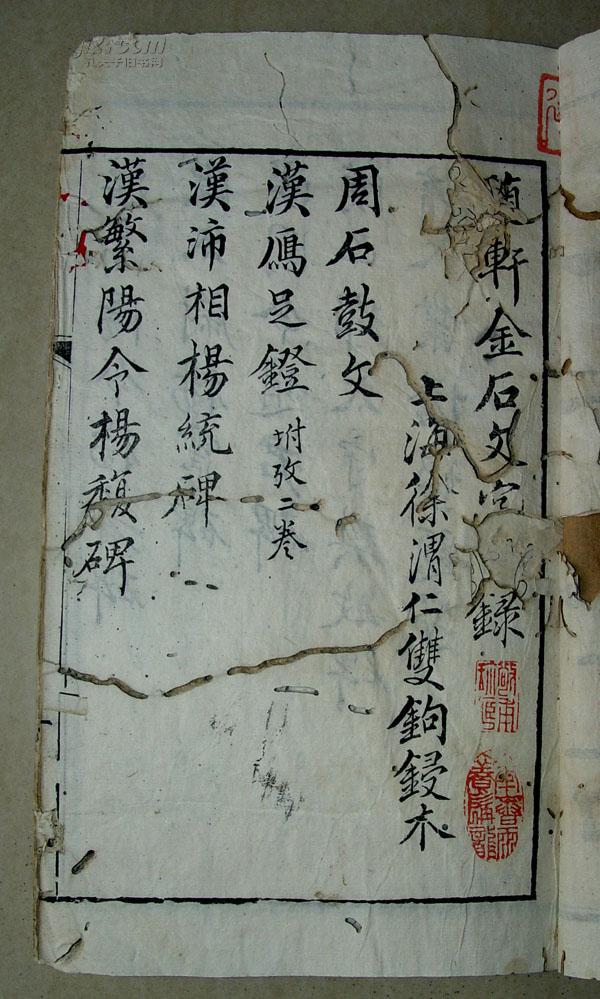 隨軒金石文字錄
上海徐渭仁雙鉤鋟木
周石鼓文
漢鴈足鐙 坿攷二卷
漢沛相楊統碑
漢繁陽令楊馥碑
孔夫子旧书网